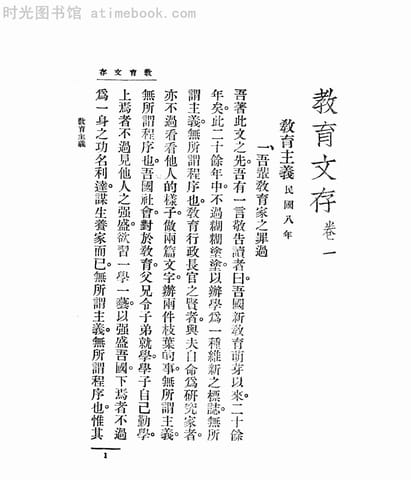 时光图书馆 - www.atimebook.com
教育文存 卷一
教育主義 民國八年
一、吾輩教育家之罪過
吾著此文之先。吾有一言敬告讀者曰。吾國新教育萌芽以來。二十餘
年矣。此二十餘年中。不過糊糊塗塗。以辦學爲一種維新之標誌。無所
謂主義。無所謂程序也。教育行政長官之賢者。與夫自命爲研究家者。
亦不過看看他人的樣子。做兩篇文字。辦兩件枝葉的事。無所謂主義。
無所謂程序也。吾國社會對於教育。父兄令子弟就學。學子自己勤學。
上焉者不過見他人之强盛。欲習一學一藝。以强盛吾國。下焉者不過
爲一身之功名利達。謀生養家而已。無所謂主義。無所謂程序也。惟其
教育文存
教育主義
1